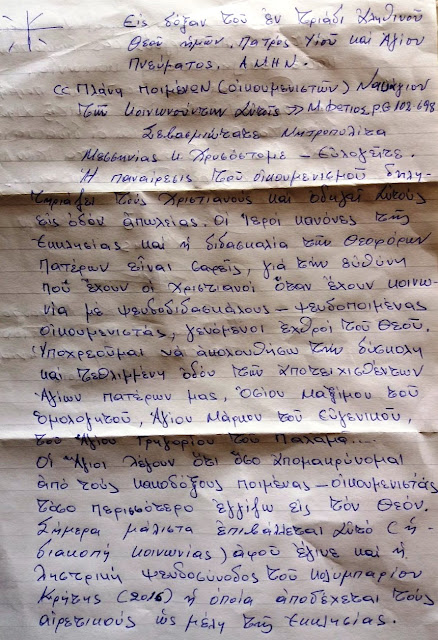 Εἰς δόξαν τοῦ ἐν Τριάδι Ἀληθινοῦ
Θεοῦ ἡμῶν, Πατρός, Υἱοῦ καί Ἁγίου
Πνεύματος, ΑΜΗΝ.
<< Πλάνη ποιμένων (οἰκουμενιστῶν) Ναυάγιον
τῶν κοινωνούντων αὐτοῖς >> Μ. Φώτιος, PG 102-698
Σεβασμιώτατε Μητροπολίτα
Μεσσηνίας κ Χρυσόστομε - Εὐλογεῖτε.
Ἡ παναίρεσις τοῦ οἰκουμενισμοῦ δηλη-
τηριάζει τούς Χριστιανούς καί ὁδηγεῖ αὐτούς
εἰς ὁδόν ἀπωλείας. Οἱ Ἱεροί κανόνες τῆς
Ἐκκλησίας καί ἡ διδασκαλία τῶν Θεοφόρων
Πατέρων εἶναι σαφεῖς, γιά τήν εὐθύνη
πού ἔχουν οἱ Χριστιανοί ὅταν ἔχουν κοινω-
νία μέ ψευδοδιδασκάλους - ψευδοποιμένας
οἰκουμενιστάς, γενόμενοι ἐχθροί τοῦ Θεοῦ.
Ὑποχρεοῦμαι νά ἀκολουθήσω τήν δύσκολη
καί τεθλιμμένη ὁδόν τῶν ἀποτειχισθέντων
Ἁγίων πατέρων μας, Ὁσίου Μαξίμου τοῦ
Ὁμολογητοῦ, Ἁγίου Μάρκου τοῦ Εὐγενικοῦ,
τοῦ Ἁγίου Γρηγορίου τοῦ Παλαμᾶ....
Οἱ Ἅγιοι λέγουν ὅτι ὅσο ἀπομακρύνομαι
ἀπό τούς κακοδόξους ποιμένας - οἰκουμενιστάς
τόσο περισσότερο ἐγγίζω εἰς τόν Θεόν.
Σήμερα μάλιστα ἐπιβάλλεται αὐτό (ἡ
διακοπή κοινωνίας) ἀφοῦ ἔγινε καί ἡ
ληστρική ψευδοσύνοδος τοῦ Κολυμπαρίου
Κρήτης (2016) ἡ ὁποία ἀποδέχεται τούς
αἱρετικούς ὡς μέλη τῆς Ἐκκλησίας.